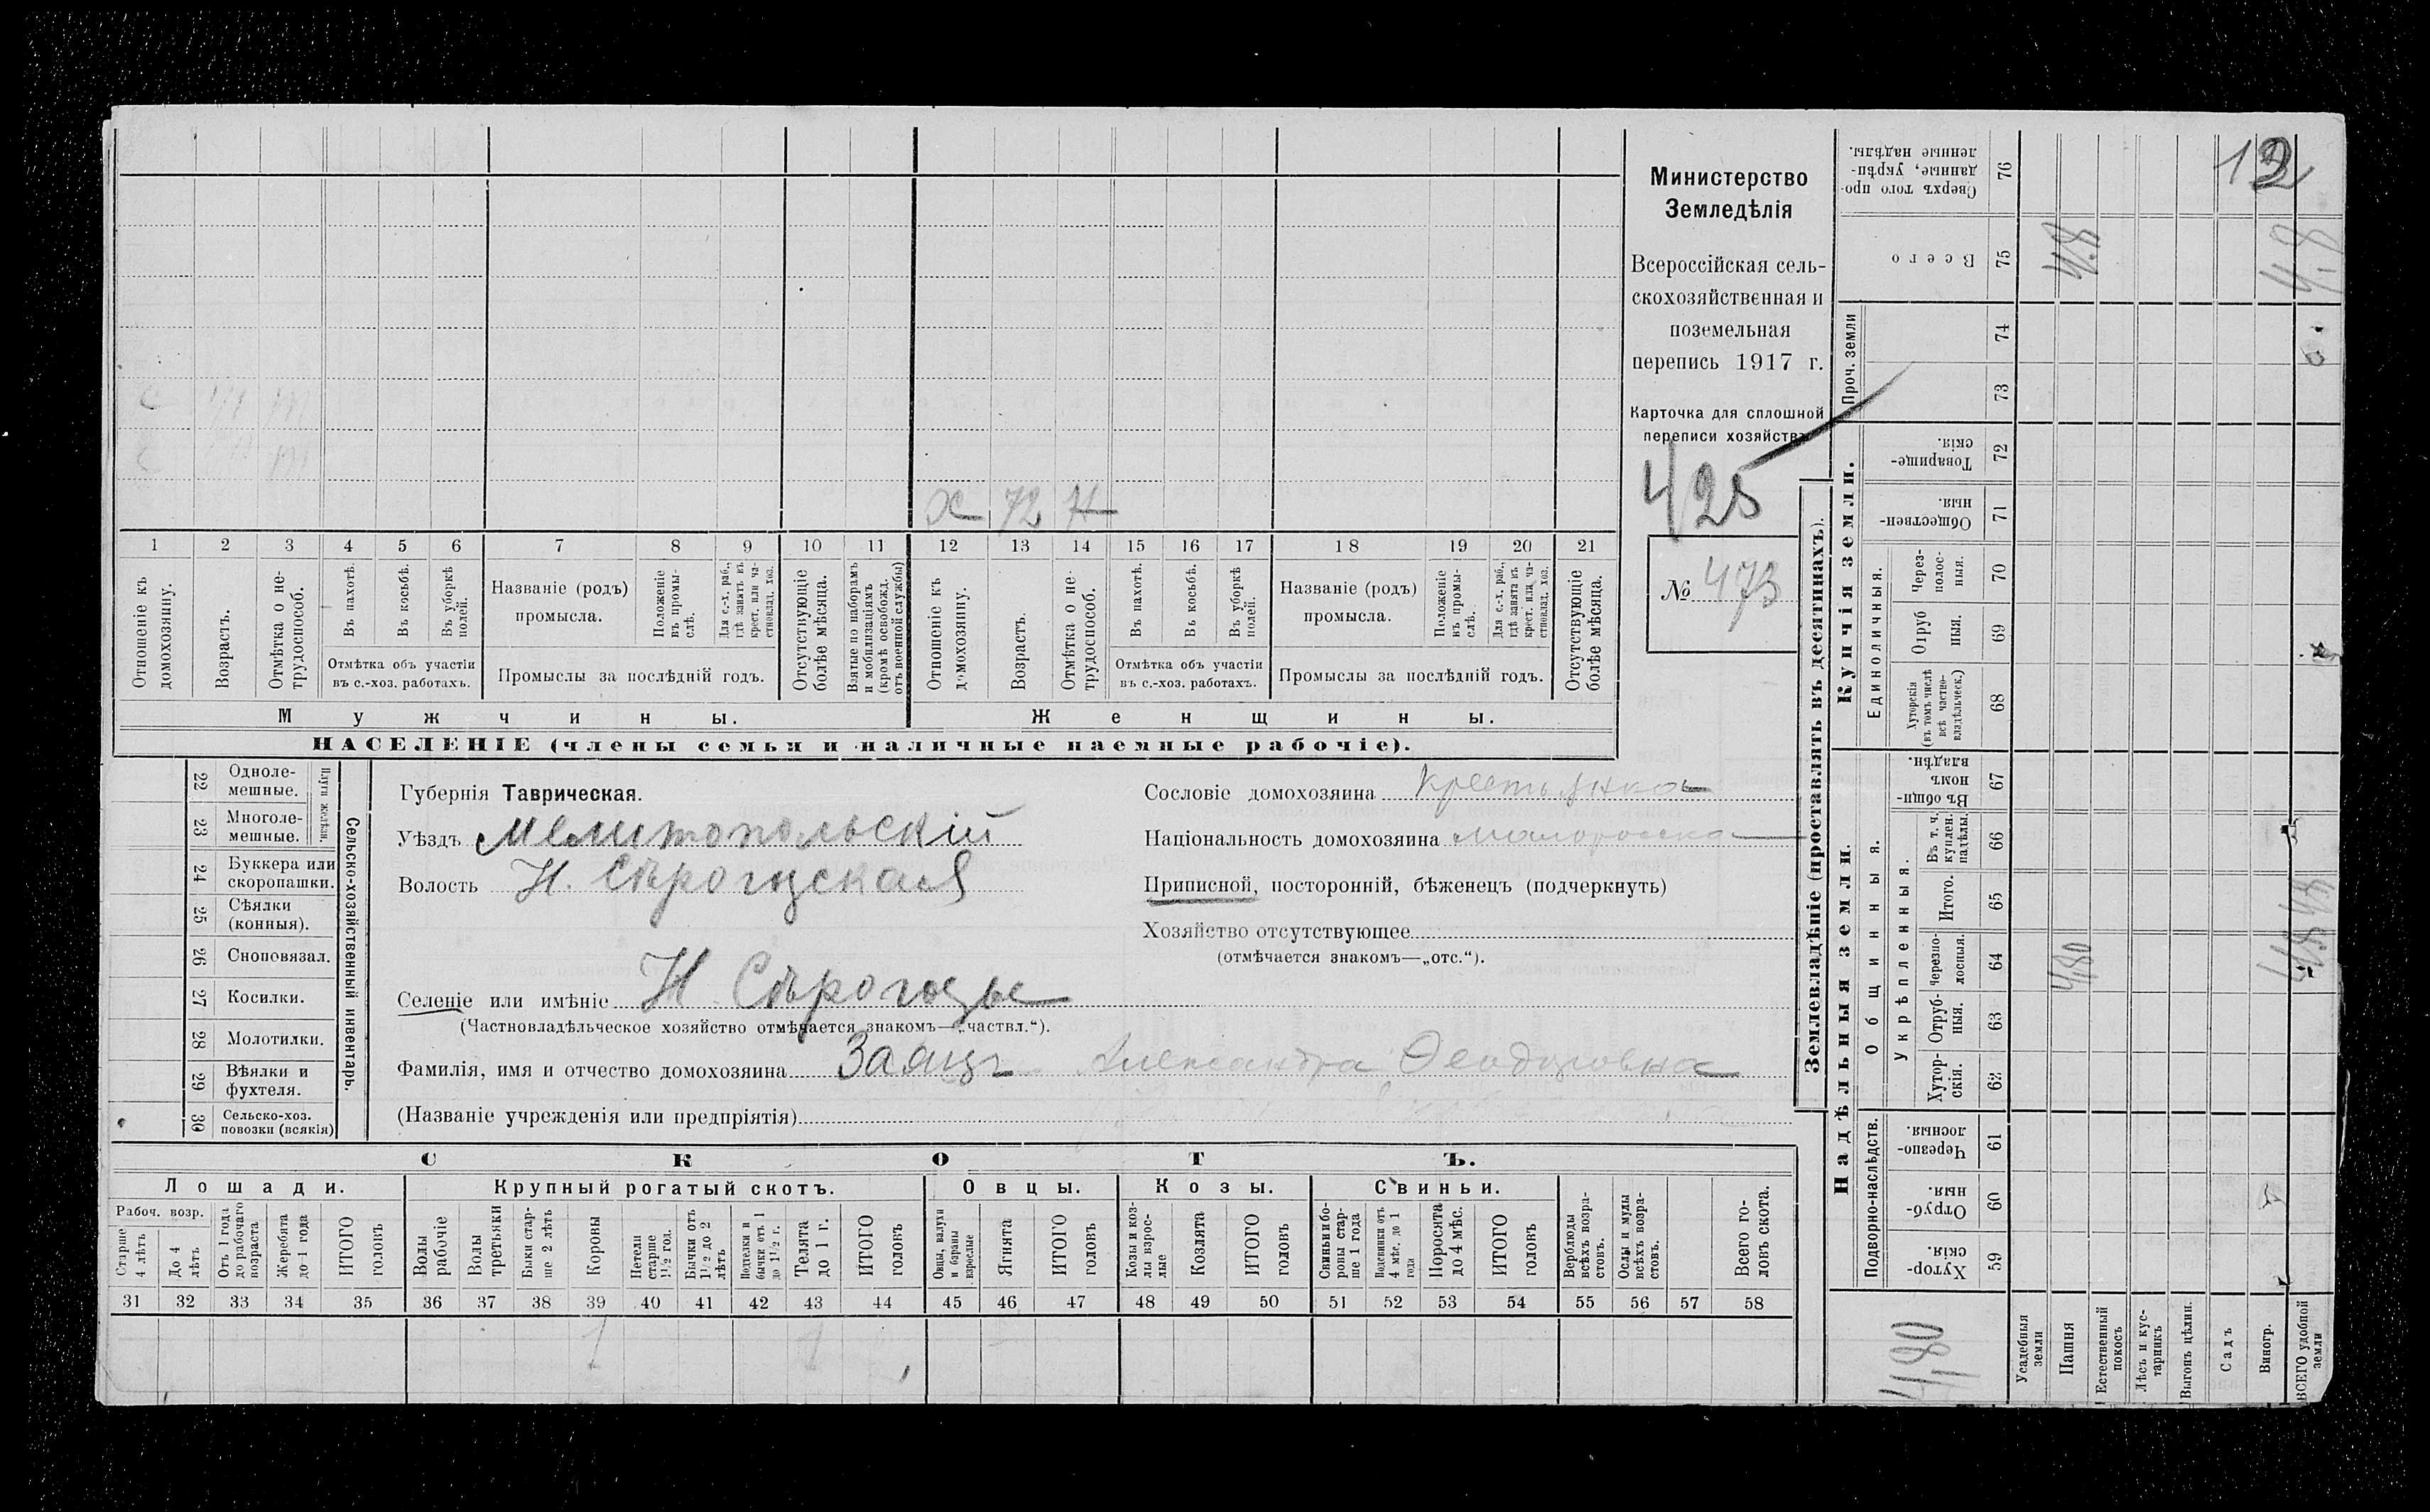 Министерство
Земледѣлія
Всероссійская сель-
скохозяйственная и
поземельная
перепись 1917 г.
Карточка для сплошной
переписи хозяйствъ
425
№ 473
х 72 н
1 2 3 4 5 6 7 8 9 10 11 12 13 14 15 16 17 18 19 20 21
Отношеніе къ домохозяину.
Возрастъ.
Отмѣтка о не-трудоспособ.
Въ пахотѣ.
Въ косьбѣ.
Въ уборкѣ полей.
Отмѣтка объ участіи
въ с.-хоз. работахъ.
Названіе (родъ)
промысла.
Положеніе въ промы-слѣ.
Для с.-х. раб., гдѣ занятъ въ крест. или ча-стновлад. хоз.
Промыслы за послѣдній годъ.
Отсутствующіе болѣе мѣсяца.
Взятые по наборамъ и мобилизаціямъ (кромѣ освобожд. отъ военной службы)
Отношеніе къ домохозяину.
Возрастъ.
Отмѣтка о не-трудоспособ.
Въ пахотѣ.
Въ косьбѣ.
Въ уборкѣ полей.
Отмѣтка объ участіи
въ с.-хоз. работахъ.
Названіе (родъ)
промысла.
Положеніе въ промы-слѣ.
Для с.-х. раб., гдѣ занята въ крест. или ча-стновлад. хоз.
Промыслы за послѣдній годъ.
Отсутствующіе болѣе мѣсяца.
Мужчины.
Женщины.
НАСЕЛЕНІЕ (члены семьи и наличные наемные рабочіе).
22 Одноле-мешные.
23 Многоле-мешные.
Плуги желѣзн.
24 Буккера или скоропашки.
25 Сѣялки (конныя).
26 Сноповязал.
27 Косилки.
28 Молотилки.
29 Вѣялки и фухтеля.
30 Сельско-хоз. повозки (всякія)
Сельско-хозяйственный инвентарь.
Губернія Таврическая.
Уѣздъ Мелитопольскій
Волость Н. Сѣрогозская
Селеніе или имѣніе Н Сѣрогозы
(Частновладѣльческое хозяйство отмѣчается знакомъ—„частвл.“).
Фамилія, имя и отчество домохозяина Заяцъ Александра Феодоровна
(Названіе учрежденія или предпріятія)
Сословіе домохозяина крестьянка
Національность домохозяина малоросска
Приписной, посторонній, бѣженецъ (подчеркнуть)
Хозяйство отсутствующее
(отмѣчается знакомъ—„отс.“).
СКОТЪ.
Лошади.
Крупный рогатый скотъ.
Овцы.
Козы.
Свиньи.
Рабоч. возр.
Старше 4 лѣтъ
До 4 лѣтъ
Отъ 1 года до рабочаго возраста
Жеребята до 1 года
ИТОГО головъ
Волы рабочіе
Волы третьяки
Быки стар-ше 2 лѣтъ
Коровы
Нетели старше 1½ год.
Бычки отъ 1½ до 2 лѣтъ
Подтелки и бычки отъ 1 до 1½ г.
Телята до 1 г.
ИТОГО головъ
Овцы, валухи и бораны взрослые
Ягнята
ИТОГО головъ
Козы и коз-лы взрос-лые
Козлята
ИТОГО головъ
Свиньи и бо-ровы стар-ше 1 года
Подсвинки отъ 4 мѣс. до 1 года
Поросята до 4 мѣс.
ИТОГО головъ
Верблюды всѣхъ возра-стовъ.
Ослы и мулы всѣхъ возра-стовъ.
Всего го-ловъ скота.
31 32 33 34 35 36 37 38 39 40 41 42 43 44 45 46 47 48 49 50 51 52 53 54 55 56 57 58
1 1
Землевладѣніе (проставлять въ десятинахъ).
Надѣльныя земли.
Купчія земли.
Проч. земли
Подворно-наслѣдств.
Общинныя.
Укрѣпленныя.
Единоличныя.
Хутор-скія. 59
Отруб-ныя. 60
Черезпо-лосныя. 61
Хутор-скія. 62
Отруб-ныя. 63
Черезпо-лосныя. 64
Итого. 65
Въ т. ч. куплен. надѣлы. 66
Въ общин-номъ владѣн. 67
Хуторскія (въ томъ числѣ всѣ частно-владѣльческ.) 68
Отруб ныя. 69
Через-полос-ныя. 70
Обществен-ныя. 71
Товарище-скія. 72
73
74
Всего 75
Сверхъ того про-данные, укрѣп-ленные надѣлы. 76
Усадебныя земли
Пашня
Естественный покосъ
Лѣсъ и кус-тарникъ
Выгонъ цѣлин.
Садъ
Виногр.
ВСЕГО удобной земли
4,80
4,80
4.8
4.8
4.8
12